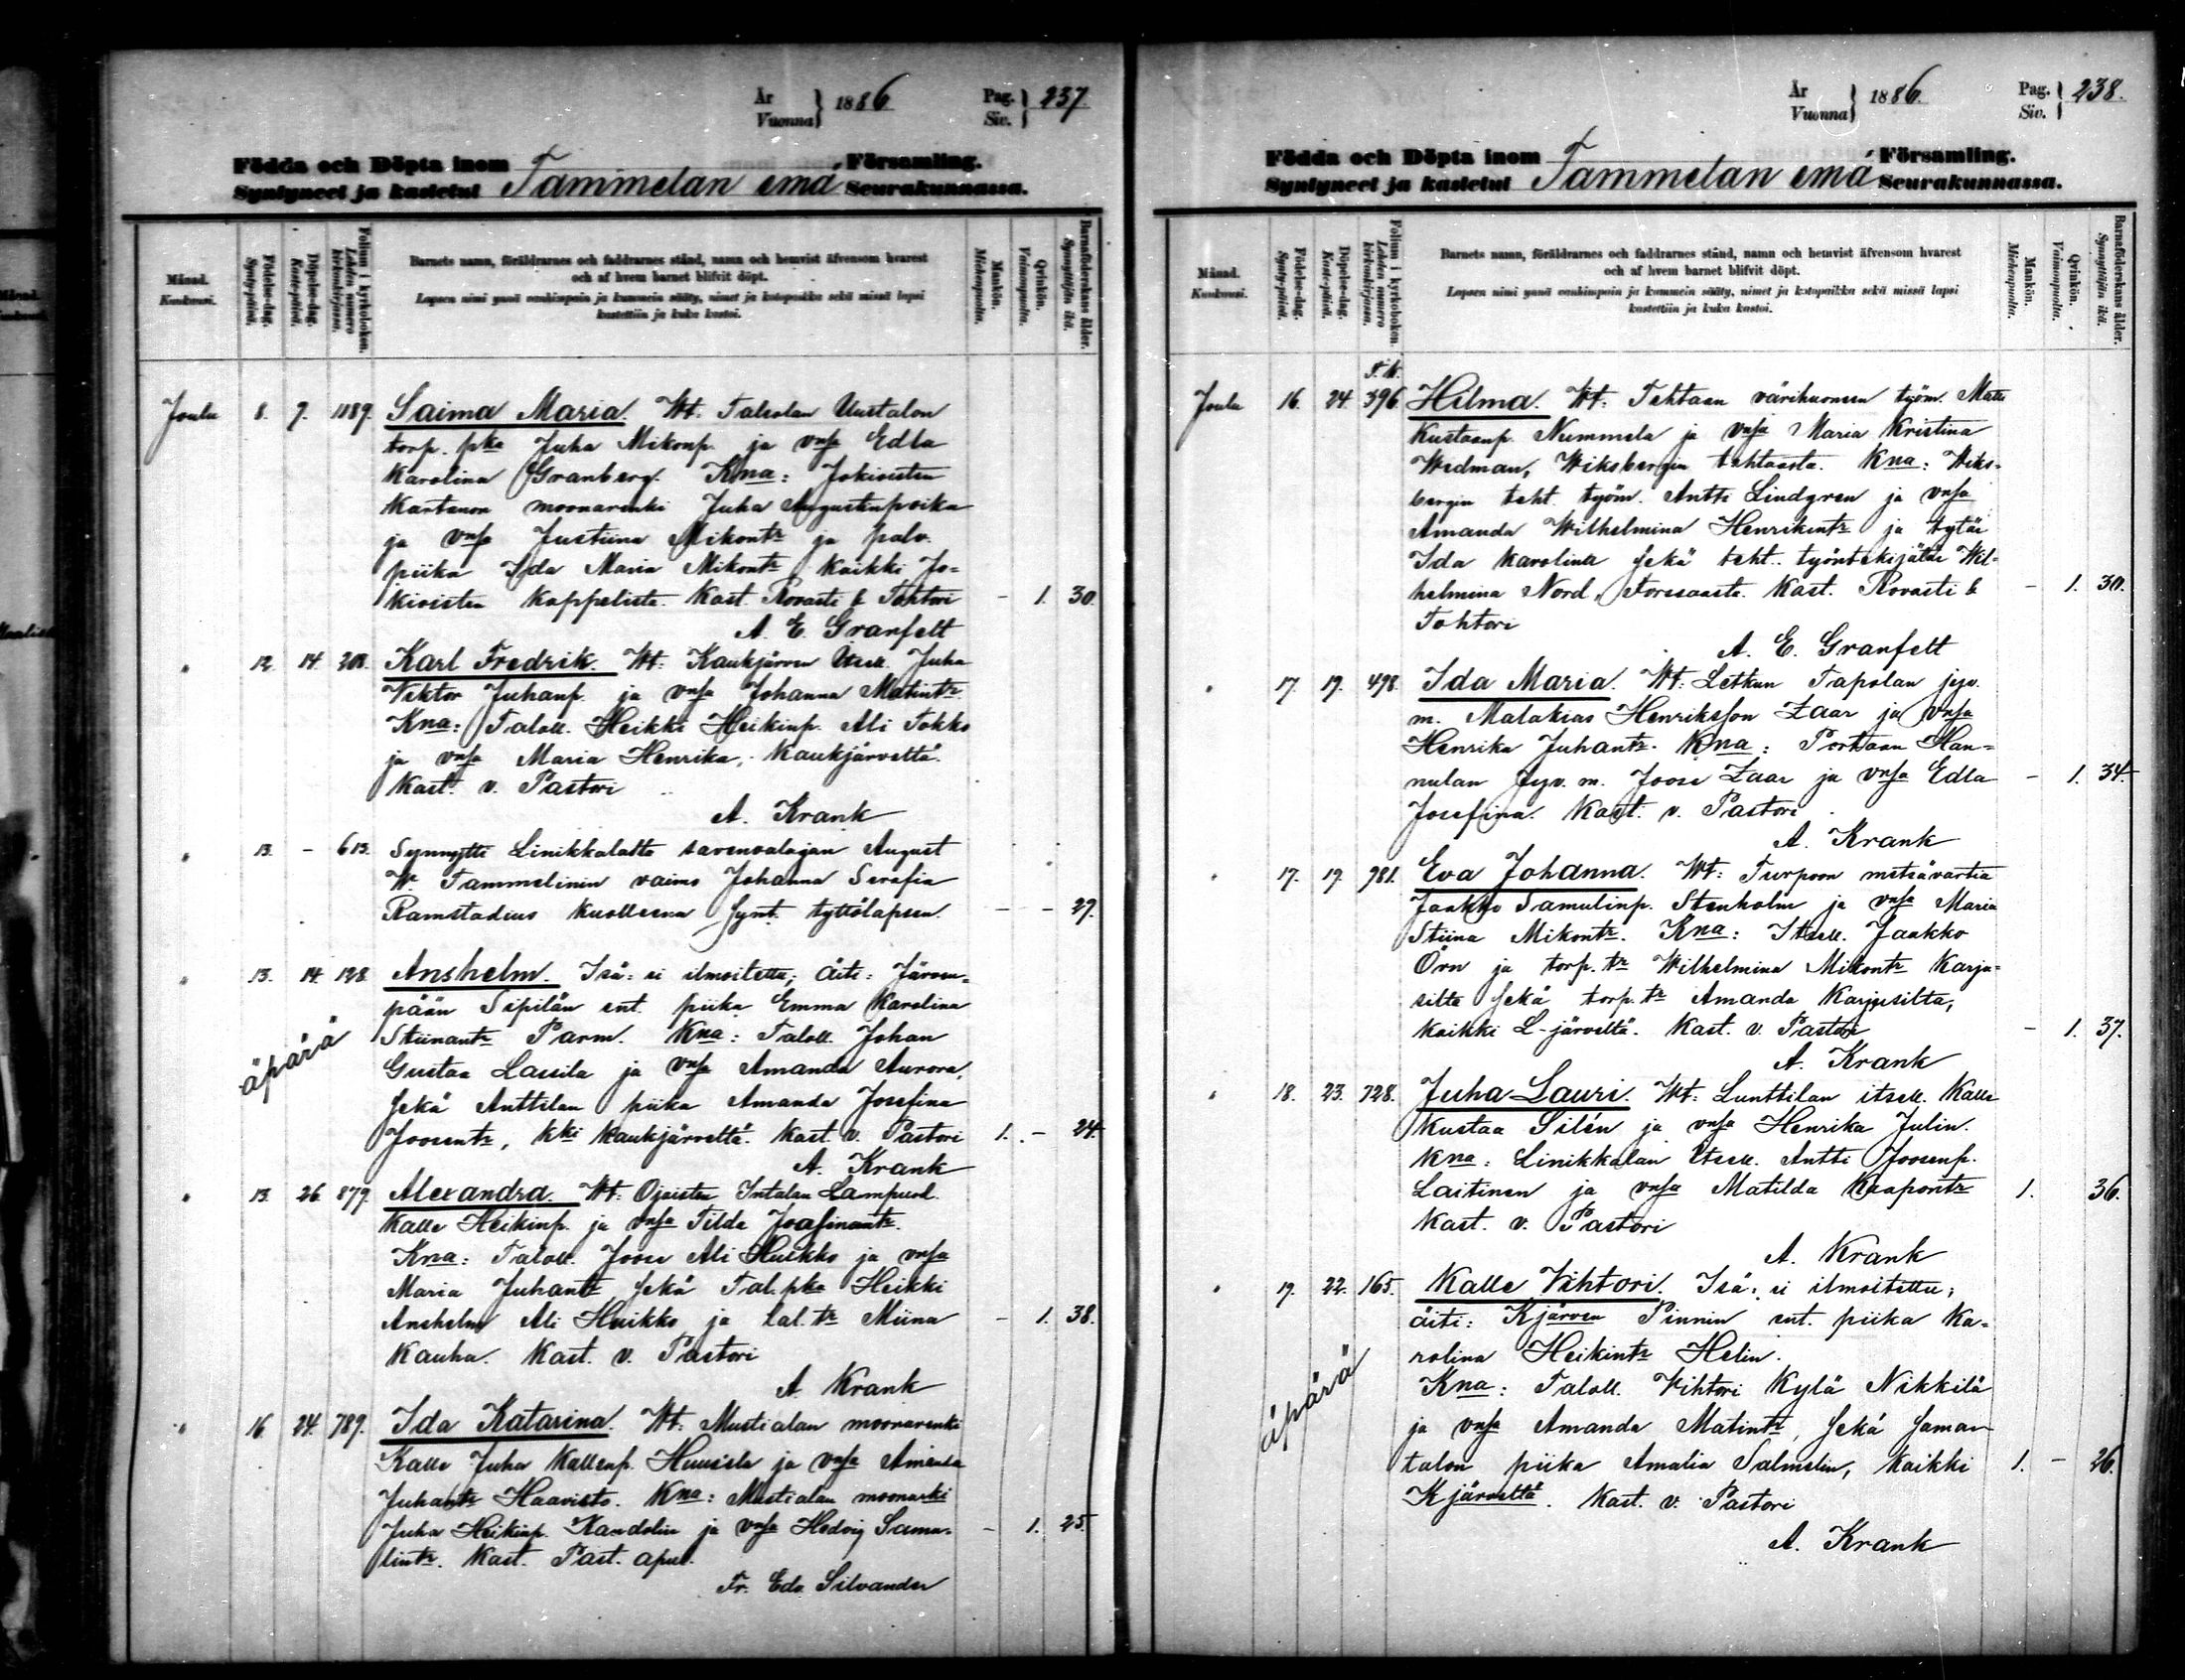 År
Vuonna } 1886
Pag.
Siv. } 237.
Födda och Döpta inom
Syntyneet ja kastetut Tammelan emä Församling.
Seurakunnassa.
Månad.
Kuukausi.
Födelse-dag.
Synty-päivä.
Döpelse-dag.
Kaste-päivä.
Folium i kyrkoboken.
Lehden numero kirkonkirjassa.
Barnets namn, föräldrarnes och faddrarnes stånd, namn och hemvist äfvensom hvarest
och af hvem barnet blifvit döpt.
Lapsen nimi ynnä vanhimpain ja kummein sääty, nimet ja kotopaikka sekä missä lapsi
kastettiin ja kuka kastoi.
Mankön.
Miehenpuolta.
Qvinkön.
Vaimonpuolta.
Barnaföderskans ålder.
Synnyttäjän ikä.
Joulu 8. 9. 1189. Saima Maria. Wt. Talsolan Uustalon
torp. pka Juha Mikonp. ja vnsa Edla
Karolina Granberg. Kna: Jokioisten
Kartanon moonarenki Juha Augustinpoika
ja vnsa Justiina Mikontr ja palv.
piika Ida Maria Mikontr kaikki Jo-
kioisten kappelista. Kast. Rovasti & Tohtori – 1. 30.
A. E. Granfelt
" 12. 14. 208. Karl Fredrik. Wt: Kaukjärven Itsell. Juha
Viktor Juhanp. ja vnsa Johanna Matintr.
Kna: Taloll. Heikki Heikinp. Ali Tokko
ja vnsa Maria Henrika, Kaukjärveltä.
Kast. v. Pastori
A. Krank
" 13. – 613. Synnytti Linikkalatta savenvalajan August
W. Tammelinin vaimo Johanna Serafia
Ramstadius kuolleena synt. tyttölapsen. – – 29.
" 13. 14. 128. Anshelm. Isä: ei ilmoitettu; äiti: Järven-
pään Sipilän ent. piika Emma Karolina
Stiinantr Parm. Kna: Taloll. Johan
äpärä
Gustaa Lassila ja vnsa Amanda Aurora,
sekä Anttilan piika Amanda Josefina
Joosentr, kki Kaukjärveltä. Kast. v. Pastori 1. – 24.
A. Krank
" 13. 26. 879. Alexandra. Wt: Ojaisten Intalan Lampuod.
Kalle Heikinp. ja vnsa Tilda Josefinantr.
Kna: Taloll. Joose Ali Huikko ja vnsa
Maria Juhantr sekä Tal. pka Heikki
Anshelm Ali Huikko ja tal. tr Miina – 1. 38.
Kauha. Kast. v. Pastori
A. Krank
" 16. 24. 789. Ida Katarina. Wt: Mustialan moonarenki
Kalle Juha Kallenp. Huusela ja vnsa Amanda
Juhantr Haavisto. Kna: Mustialan moonarki
Juha Heikinp. Kandolin ja vnsa Hedvig Samu- – 1. 25.
lintr. Kast. Past. apul.
Fr. Edv. Silvander
År
Vuonna } 1886.
Pag.
Siv. } 238.
Födda och Döpta inom
Syntyneet ja kastetut Tammelan emä Församling.
Seurakunnassa.
Månad.
Kuukausi.
Födelse-dag.
Synty-päivä.
Döpelse-dag.
Kaste-päivä.
Folium i kyrkoboken.
Lehden numero kirkonkirjassa.
Barnets namn, föräldrarnes och faddrarnes stånd, namn och hemvist äfvensom hvarest
och af hvem barnet blifvit döpt.
Lapsen nimi ynnä vanhimpain ja kummein sääty, nimet ja kotopaikka sekä missä lapsi
kastettiin ja kuka kastoi.
Mankön.
Miehenpuolta.
Qvinkön.
Vaimonpuolta.
Barnaföderskans ålder.
Synnyttäjän ikä.
Joulu 16. 24. 396. Hilma. Wt: Tehtaan värihuoneen työm. Matti
Kustaanp. Nummela ja vnsa Maria Kristina
Wedman, Wiksbergin tehtaasta. Kna: Wiks-
bergin teht. työm. Antti Lindgren ja vnsa
Amanda Wilhelmina Henrikintr ja tytär
Ida Karolina sekä teht. työntekijätär Wil-
helmina Nord, Forssasta. Kast. Rovasti & – 1. 30.
Tohtori
A. E. Granfelt
" 17. 19. 498. Ida Maria. Wt: Letkun Tapolan jyv.
m. Malakias Henriksson Zaar ja vnsa
Henrika Juhantr. Kna: Portaan Han-
nulan Jyv. m. Joose Zaar ja vnsa Edla – 1. 34.
Josefina. Kast. v. Pastori
A. Krank
" 17. 19. 981. Eva Johanna. Wt: Turpoon metsävartia
Jaakko Samulinp. Stenholm ja vnsa Maria
Stiina Mikontr. Kna: Itsell. Jaakko
Örn ja torp. tr Wilhelmina Mikontr Karju-
silta sekä torp. tr Amanda Karjusilta,
kaikki L-järveltä. Kast. v. Pastori – 1. 37.
A. Krank
" 18. 23. 728. Juha Lauri. Wt: Lunttilan itsell. Kalle
Kustaa Silén ja vnsa Henrika Julin.
Kna: Linikkalan Itsell. Antti Joosenp.
Laitinen ja vnsa Matilda Kaapontr 1. 36.
Kast. v. Pastori
A. Krank
" 19. 22. 165. Kalle Vihtori. Isä: ei ilmoitettu;
äiti: Kjärven Pinnin ent. piika Ka-
rolina Heikintr Helin.
äpärä
Kna: Taloll. Vihtori Kylä Nikkilä
ja vnsa Amanda Matintr, sekä saman
talon piika Amalia Salmelin, kaikki 1. – 26.
Kjärveltä. Kast. v. Pastori
A. Krank